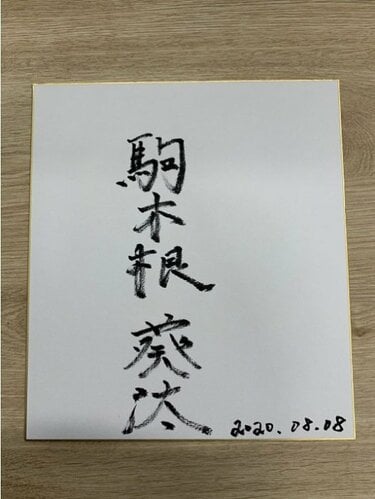 駒木根 葵汰
2020.08.08